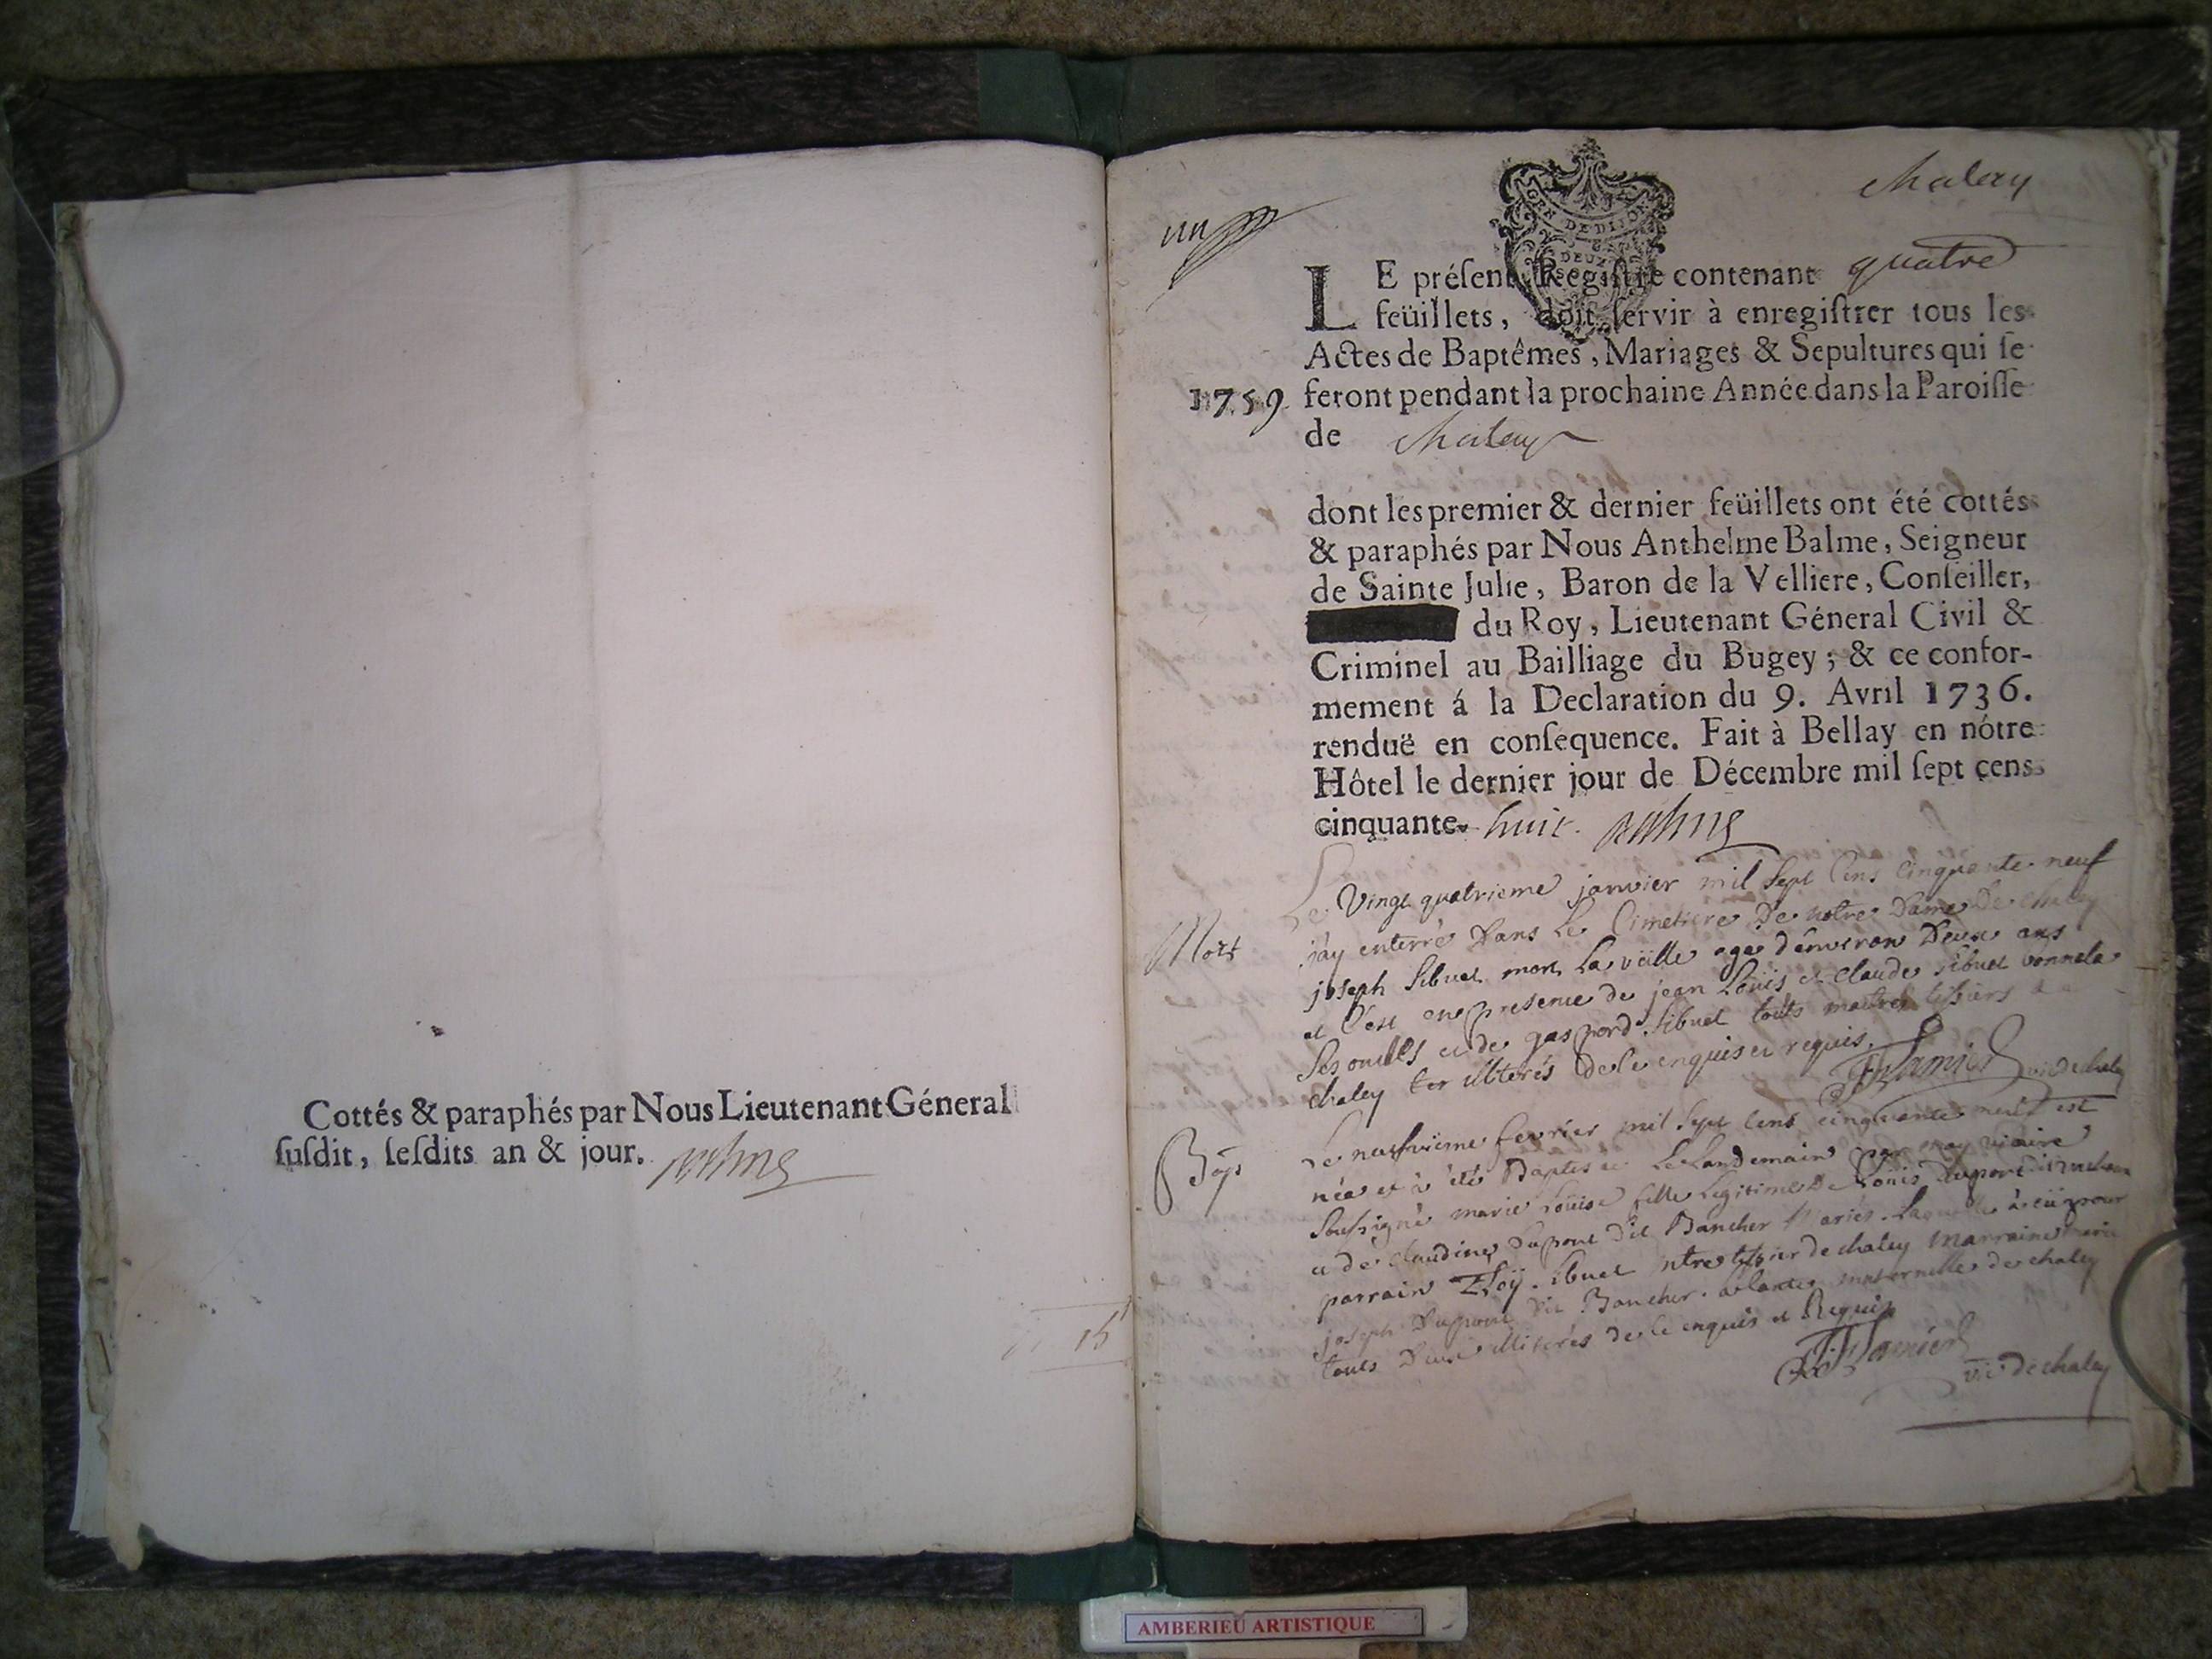 Cottés & paraphés par Nous Lieutenant Géneral
ſuſdit, leſdits an & jour.
chaley
un
GEN DE DIJON
DEUX
LE préſent Regiſtre contenant quatre
feüillets, doit ſervir à enregiſtrer tous les
Actes de Baptêmes, Mariages & Sepultures qui ſe
1759 feront pendant la prochaine Année dans la Paroiſſe
de chaley
dont les premier & dernier feüillets ont été cottés
& paraphés par Nous Anthelme Balme, Seigneur
de Sainte Julie, Baron de la Velliere, Conſeiller,
du Roy, Lieutenant Géneral Civil &
Criminel au Bailliage du Bugey; & ce confor-
mement á la Declaration du 9. Avril 1736.
renduë en conſequence. Fait à Bellay en nótre
Hôtel le dernier jour de Décembre mil ſept cens
cinquante huit
Le Vingt quatrieme janvier mil Sept Cens Cinquante neuf
Mort j'ay enterré Dans Le Cimetiere De notre Dame De chaley
joseph Sibuet mort La veille agé d'environ Deux ans
et C'est en presence de jean Loüis et claude sibuet
et de gaspard Sibuet touts maitres tissiers de
chaley illiterés de ce enquis et requis.
vic. De chaley
Le neufvieme fevrier mil Sept Cens cinquante neuf est
Bap née et à été Baptisée Le Landemain par moy vicaire
Soussigné marie Loüise fille Legitime De Loüis Dupont dit
et de Claudine Dupont Dit Bancher Mariés. Laquelle à eü pour
parrain Eloy Sibuet tissier de chaley marraine marie
joseph Dupont Dit Bancher. maternelle de chaley
touts Deux illiterés de ce enquis et Requis
vic. De chaley
AMBERIEU ARTISTIQUE